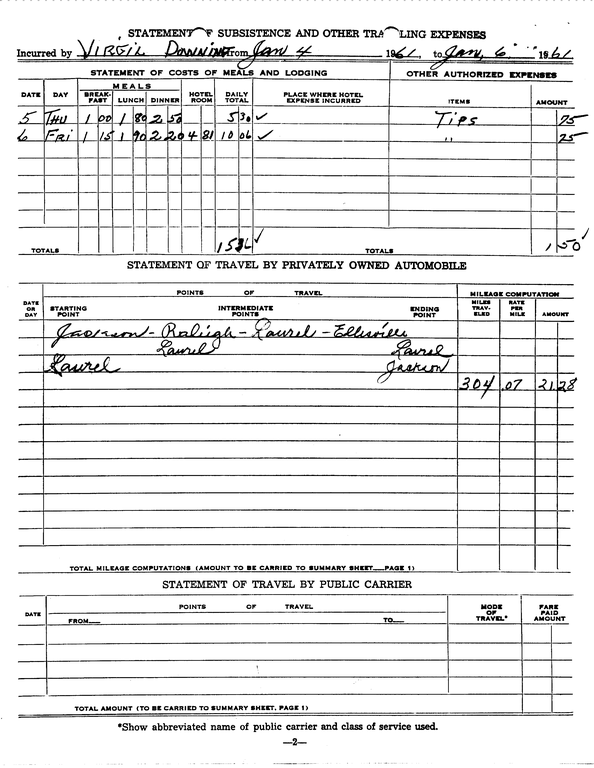 STATEMENT F SUBSISTENCE AND OTHER TRA LING EXPENSES
Incurred by VIRGIL Downing from Jan 4 1961, to Jan, 6 1961
STATEMENT OF COSTS OF MEALS AND LODGING OTHER AUTHORIZED EXPENSES
DATE DAY MEALS BREAK-FAST LUNCH DINNER HOTEL ROOM DAILY TOTAL PLACE WHERE HOTEL EXPENSE INCURRED ITEMS AMOUNT
5 THU 1 00 1 80 2 50 5 30 ✓ Tips 75
6 FRI 1 15 1 90 2 20 4 81 10 06 ✓ " 75
TOTALS 15 36 ✓ TOTALS 1 50 ✓
STATEMENT OF TRAVEL BY PRIVATELY OWNED AUTOMOBILE
DATE OR DAY POINTS OF TRAVEL MILEAGE COMPUTATION
STARTING POINT INTERMEDIATE POINTS ENDING POINT MILES TRAV-ELED RATE PER MILE AMOUNT
Jackson - Raleigh - Laurel - Ellisville
Laurel Laurel
Laurel Jackson
304 .07 21.28
TOTAL MILEAGE COMPUTATIONS (AMOUNT TO BE CARRIED TO SUMMARY SHEET PAGE 1)
STATEMENT OF TRAVEL BY PUBLIC CARRIER
DATE POINTS OF TRAVEL MODE OF TRAVEL* FARE PAID AMOUNT
FROM TO
TOTAL AMOUNT (TO BE CARRIED TO SUMMARY SHEET, PAGE 1)
*Show abbreviated name of public carrier and class of service used.
—2—